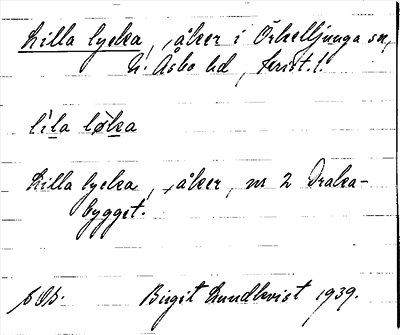 Lilla lycka, åker i Örkelljunga sn,
N. Åsbo hd, Krist. l.
lìla lø̀ka
Lilla lycka, åker, nr 2 Draka-
bygget.
Birgit Lundkvist 1939.